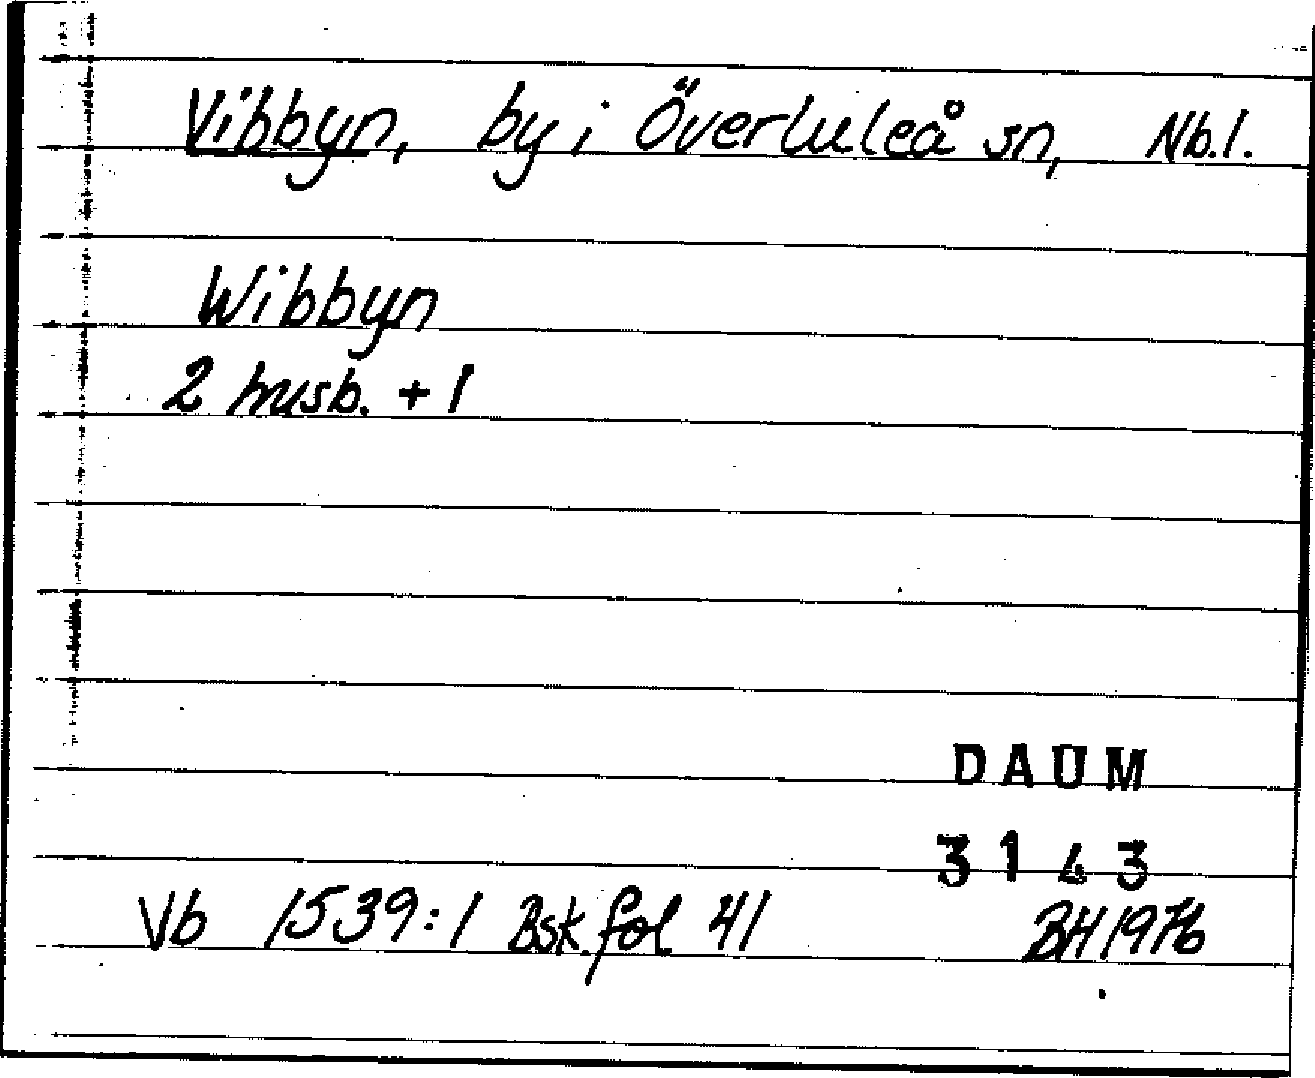 Vibbyn, by i Överluleå sn, Nb.l.
Wibbyn
2 husb. + 1
DAUM
3143
Vb 1539:1 Bsk fol 41 BH 1976